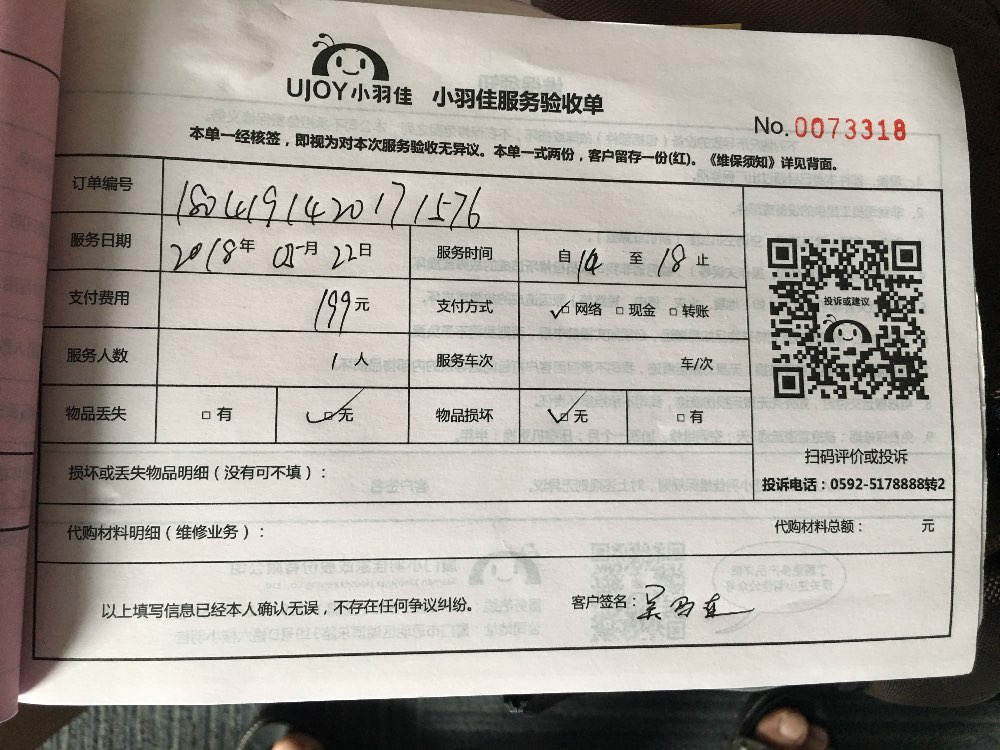 UJOY小羽佳 小羽佳服务验收单
No.0073318
本单一经核签，即视为对本次服务验收无异议。本单一式两份，客户留存一份(红)。《维保须知》详见背面。
订单编号 180419142017 1576
服务日期 2018年 05月 22日 服务时间 自14 至 18 止
支付费用 199元 支付方式 ✓□网络 □现金 □转账
投诉或建议
服务人数 1人 服务车次 车/次
物品丢失 □有 ✓□无 物品损坏 ✓□无 □有
扫码评价或投诉
投诉电话：0592-5178888转2
损坏或丢失物品明细（没有可不填）：
代购材料明细（维修业务）： 代购材料总额： 元
以上填写信息已经本人确认无误，不存在任何争议纠纷。 客户签名：